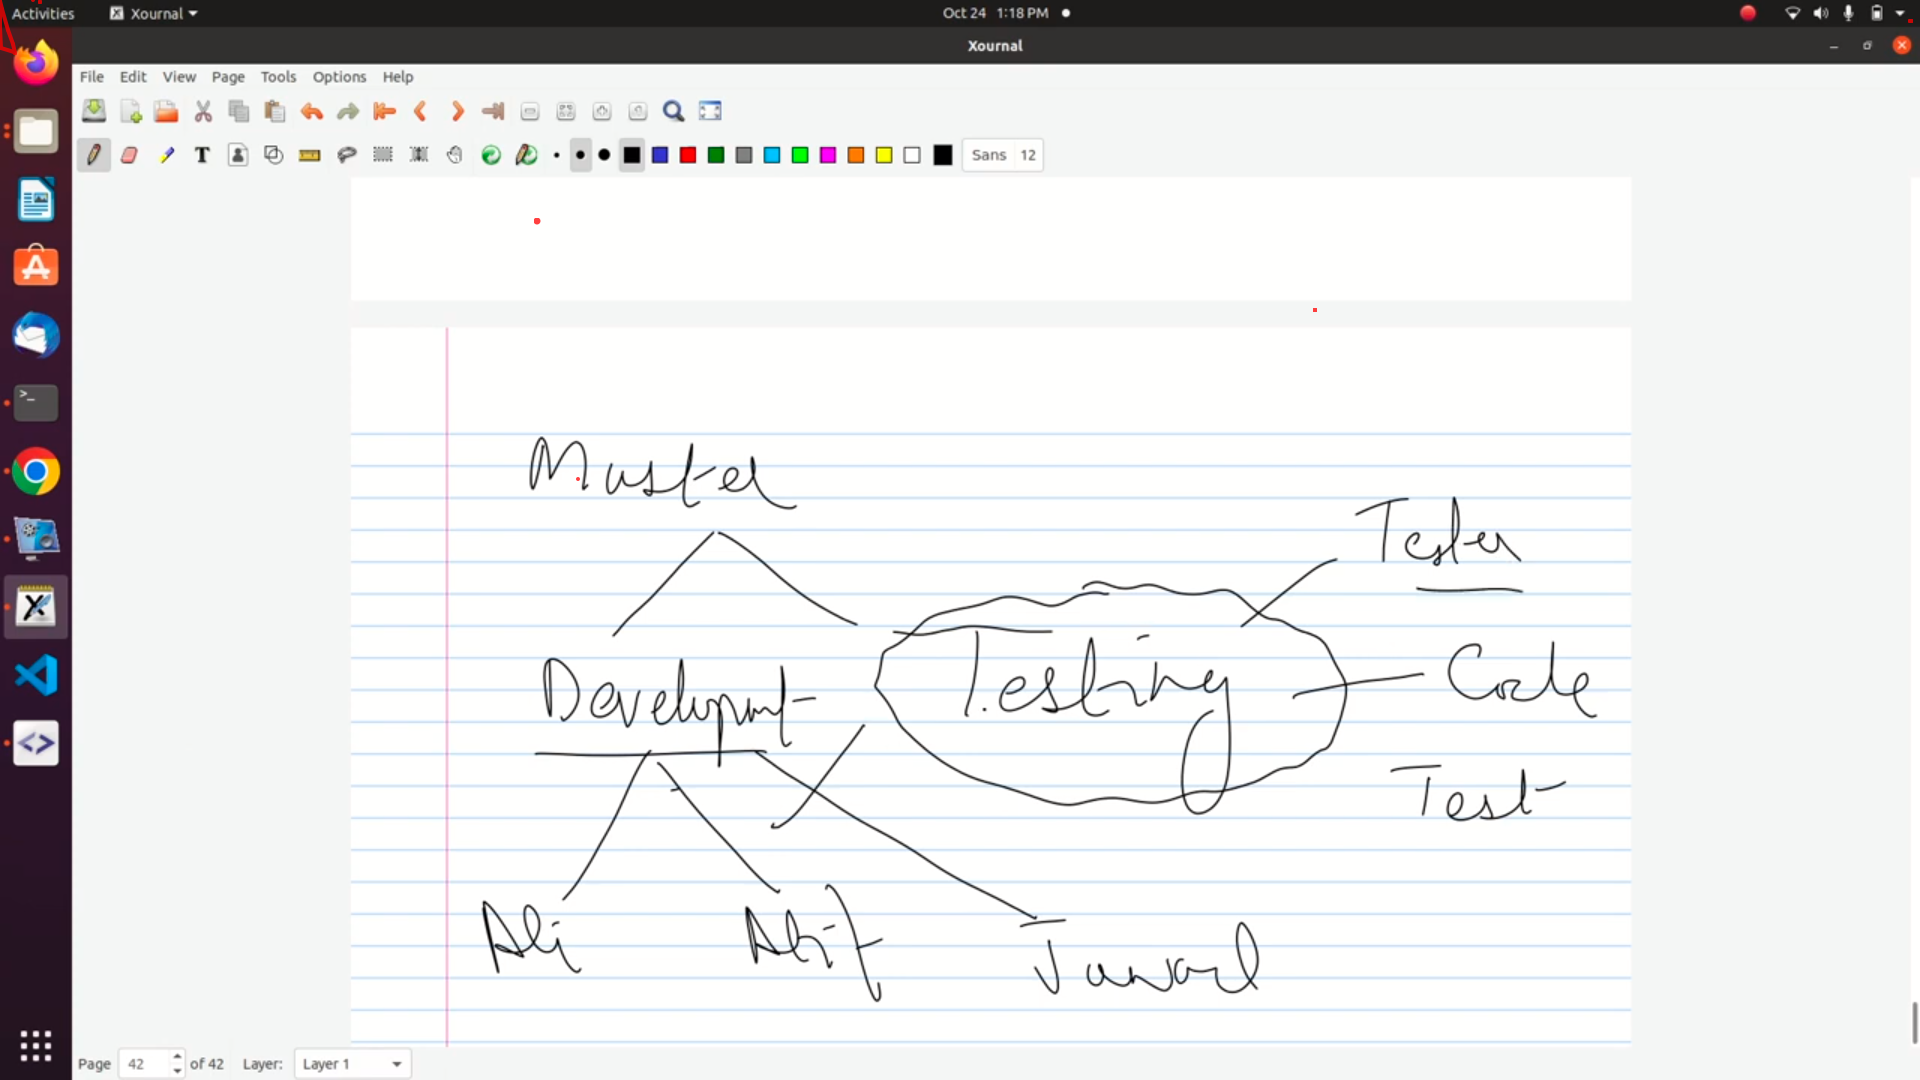 Activities Xournal Oct 24 1:18 PM
Xournal
File Edit View Page Tools Options Help
T Sans 12
Master
Tester
Development Testing Code
Test
Ali Jawad
Page 42 of 42 Layer: Layer 1